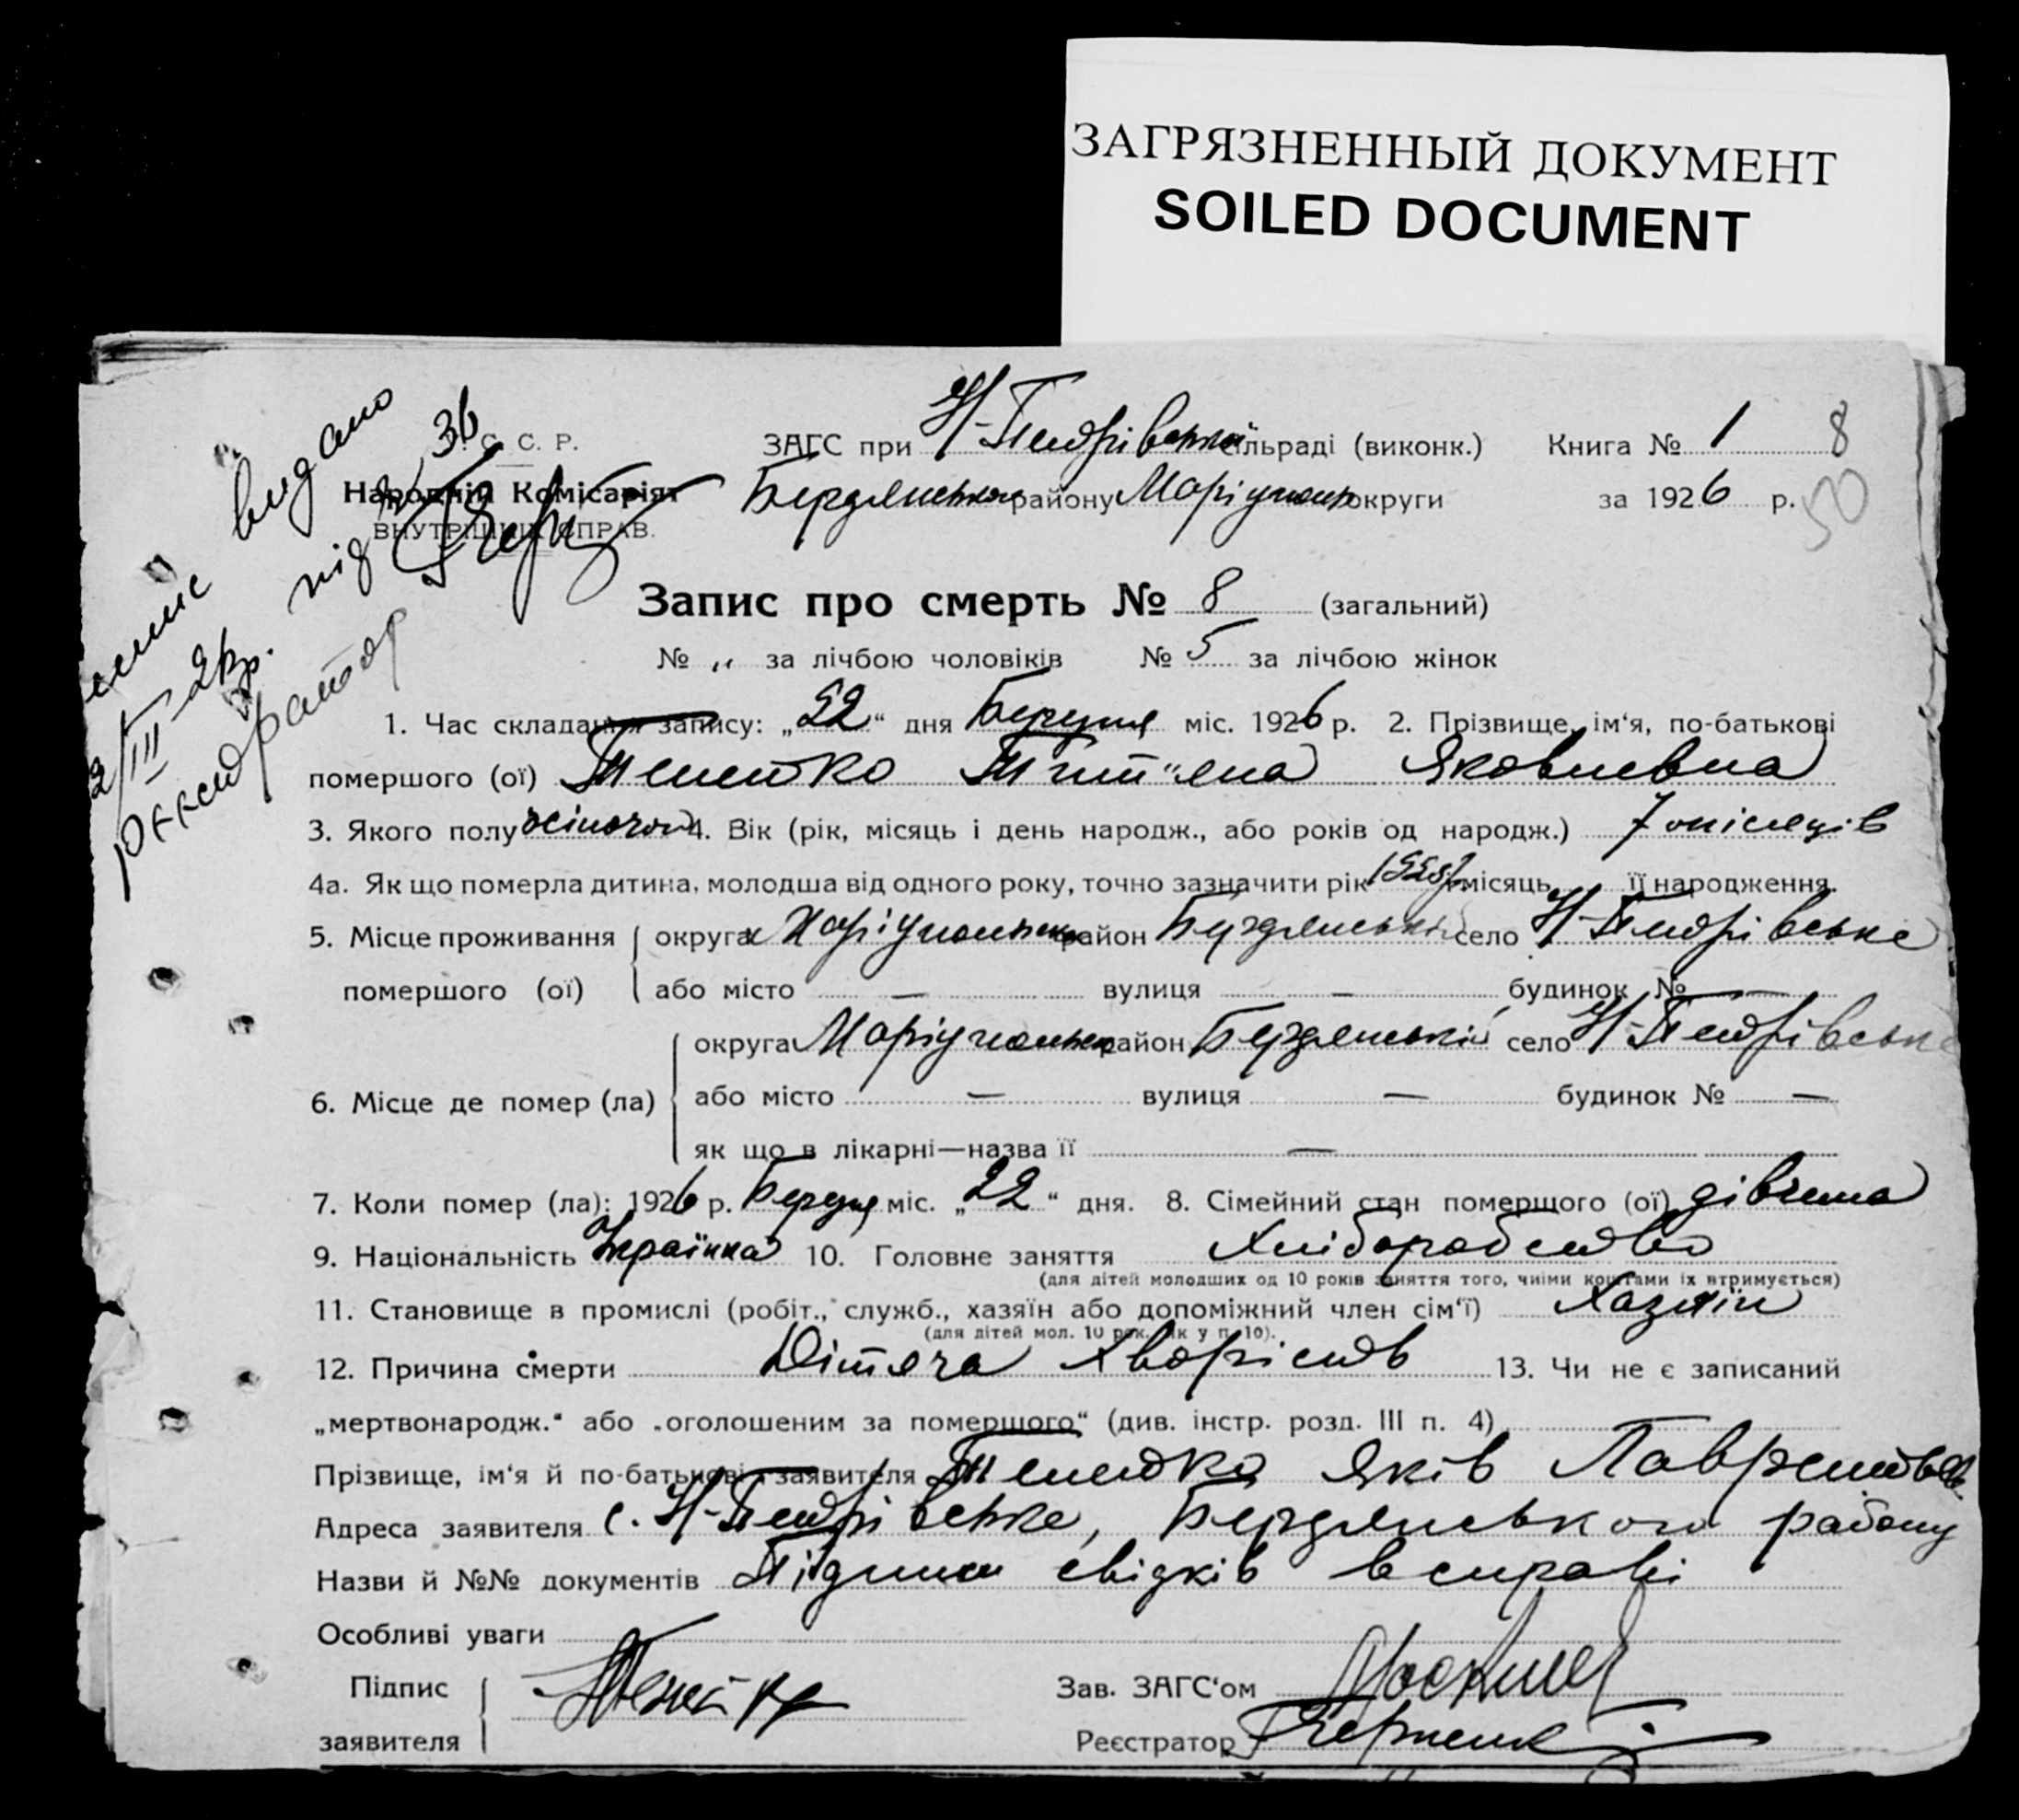 ЗАГРЯЗНЕННЫЙ ДОКУМЕНТ
SOILED DOCUMENT
видано
С. С. Р.
ЗАГС при Н-Петрівській сільраді (виконк.) Книга № 1 8
Народній Комісаріят
ВНУТРІШНІХ СПРАВ.
Бердянського району Маріупольськ округи за 1926 р. 50
під № 36
2/III-26р.
Реєстратор
Запис про смерть № 8 (загальний)
№ „ за лічбою чоловіків № 5 за лічбою жінок
1. Час складання запису: „22“ дня Березня міс. 1926 р. 2. Прізвище, ім‘я, по-батькові
помершого (ої) Тенетко Тит"яна Яковлевна
3. Якого полу жіночого 4. Вік (рік, місяць і день народж., або років од народж.) 7 місяців
4а. Як що померла дитина, молодша від одного року, точно зазначити рік 1925 р місяць її народження.
5. Місце проживання округа Маріупольськ район Бердянський село Н-Петрівське
помершого (ої) або місто — вулиця — будинок № —
округа Маріупольськ район Бердянський село Н-Петрівське
6. Місце де помер (ла) або місто — вулиця — будинок № —
як що в лікарні—назва її —
7. Коли помер (ла): 1926 р. Березня міс. „22“ дня. 8. Сімейний стан помершого (ої) дівчина
9. Національність Українка 10. Головне заняття Хліборобство
(для дітей молодших од 10 років заняття того, чиїми коштами їх втримується)
11. Становище в промислі (робіт., служб., хазяїн або допоміжний член сім‘ї) Хазяїн
(для дітей мол. 10 рок. як у п. 10).
12. Причина смерти Дітяча хворість 13. Чи не є записаний
„мертвонародж.“ або „оголошеним за померщого“ (див. інстр. розд. III п. 4)
Прізвище, ім‘я й по-батькові заявителя Тенетко Яків Лаврентьєв.
Адреса заявителя с. Н-Петрівське, Бердянського району
Назви й №№ документів Підписи свідків в справі
Особливі уваги
Підпис
заявителя
Зав. ЗАГС‘ом
Реєстратор